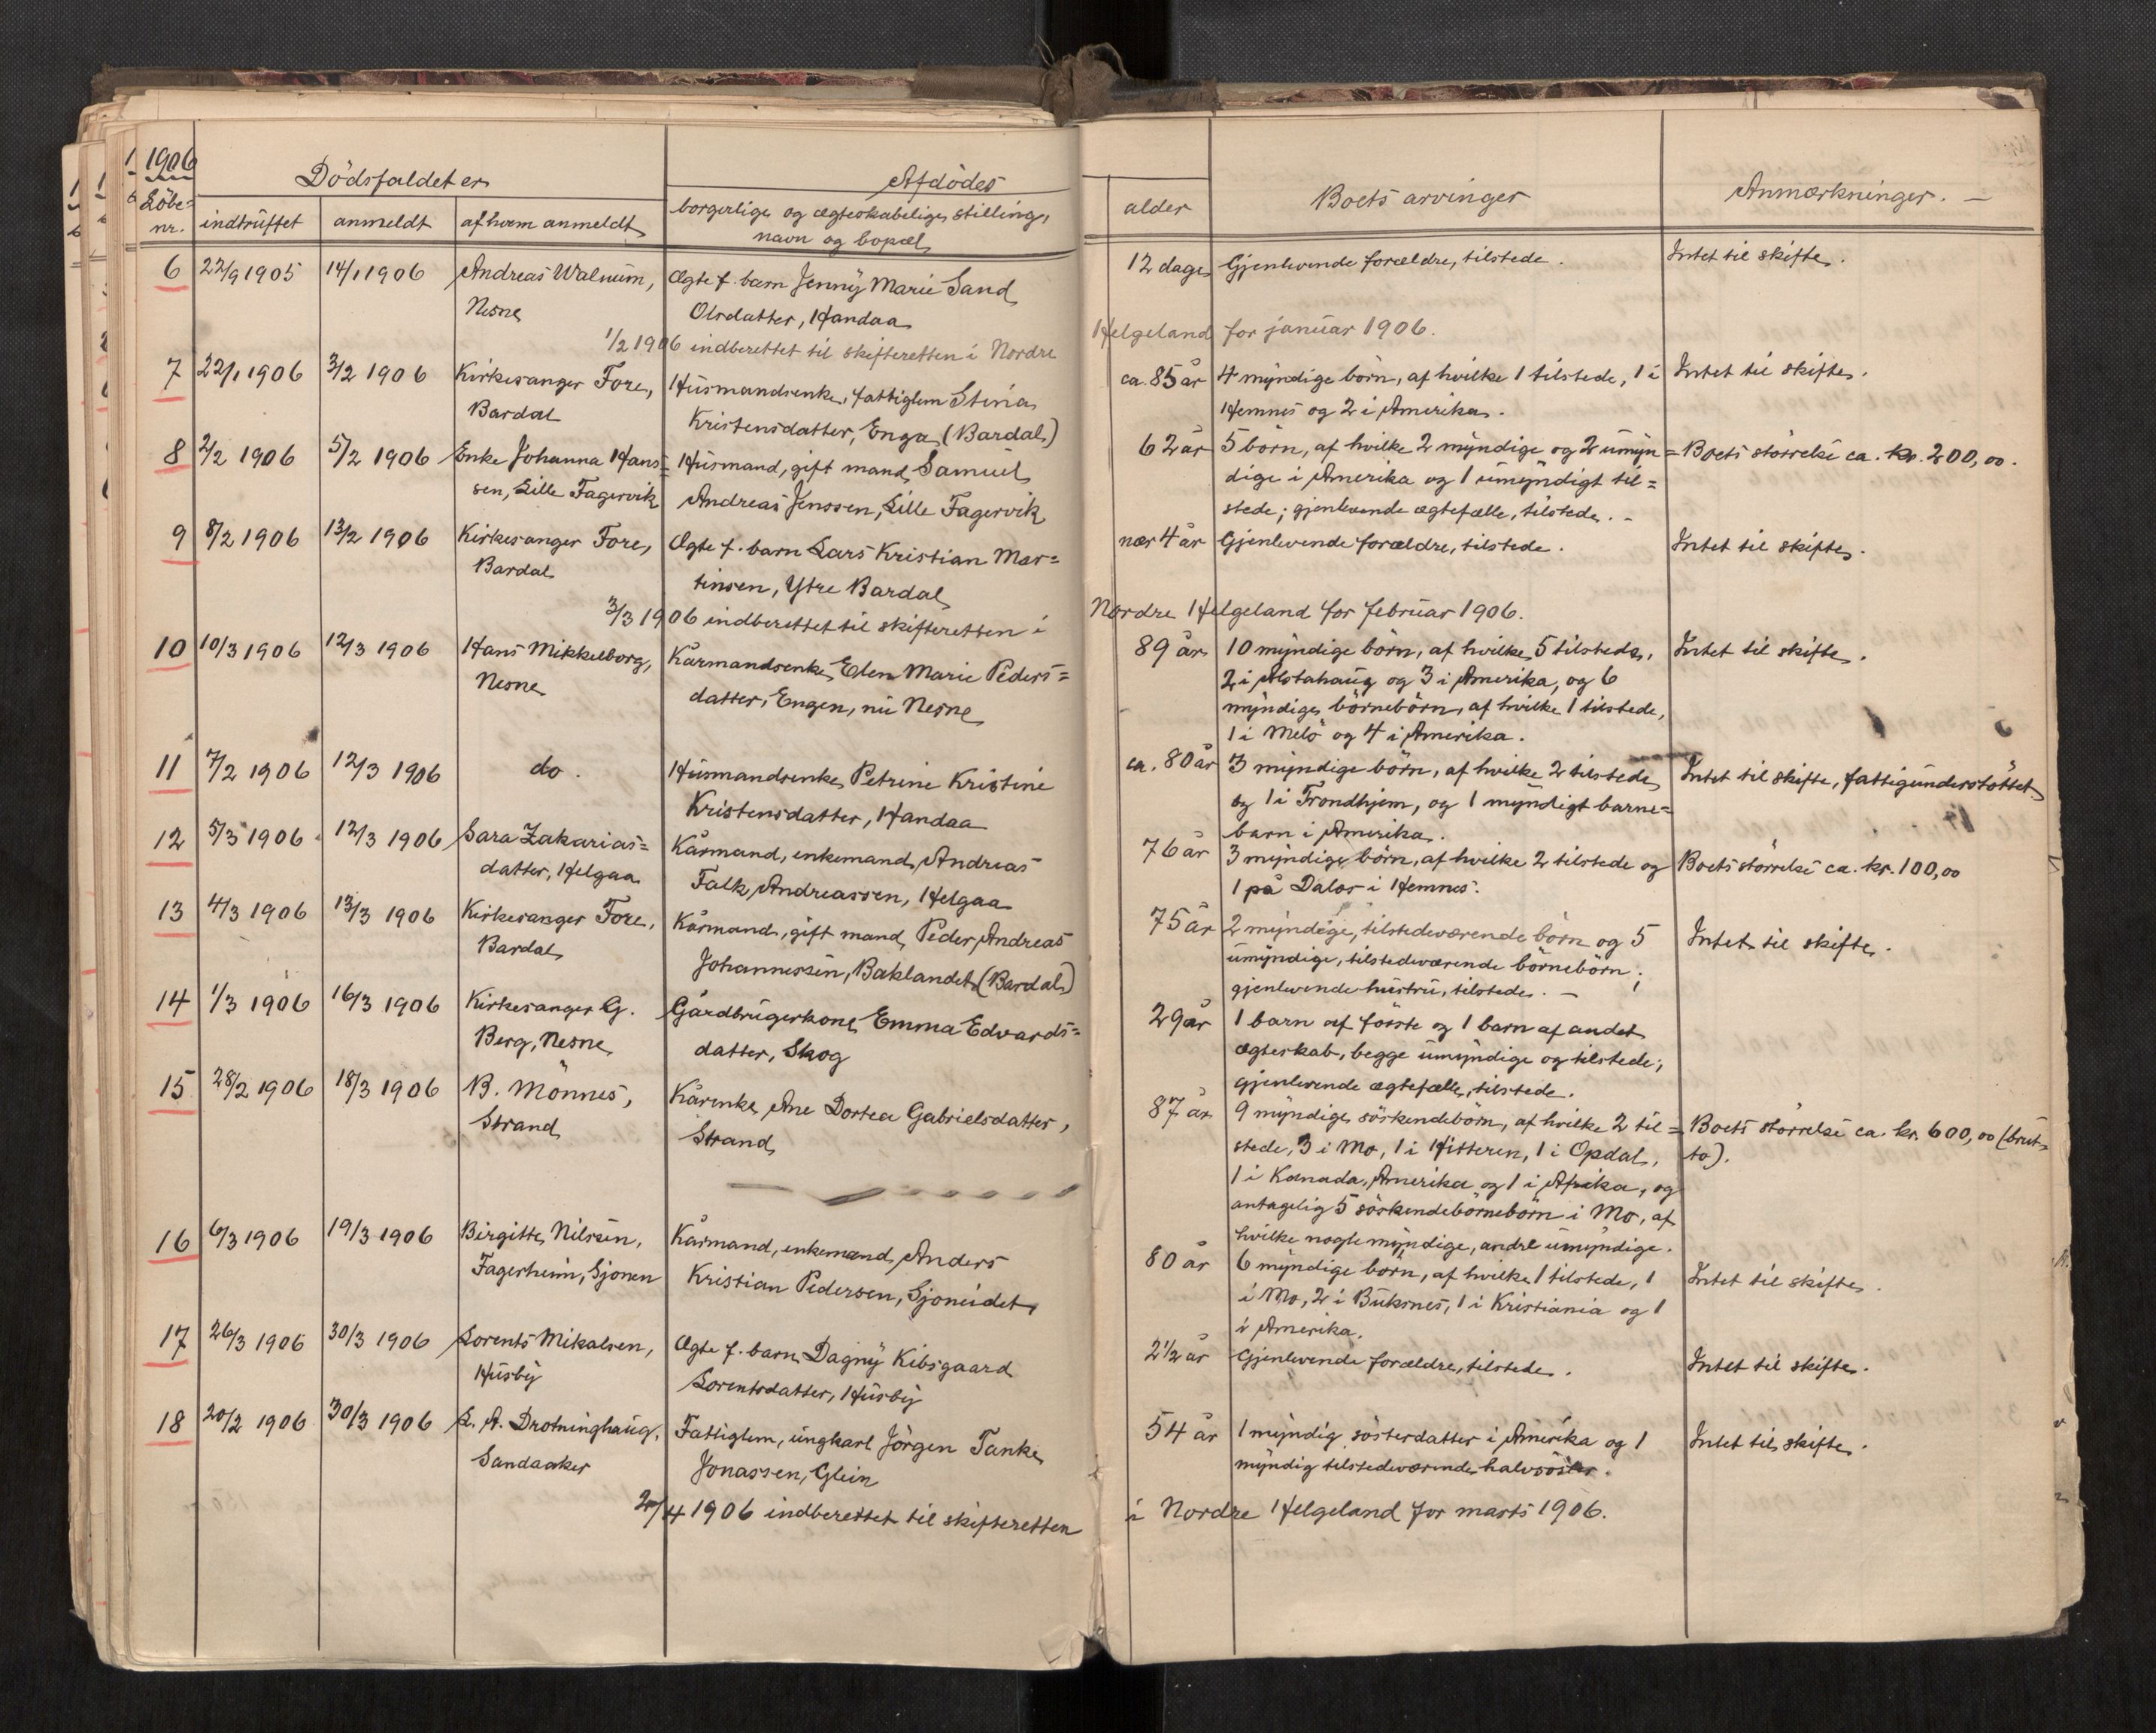 1906
Dödsfaldet er
Afdödes
Löbe-
nr.
indtruffet
anmeldt
af hvem anmeldt
borgerlige og ægteskabelige stilling,
navn og bopæl
alder
Boets arvinger
Anmærkninger. —
6 22/9 1905 14/1 1906 Andreas Walnum, Ægte f. barn Jenny Marie Sand 12 dage Gjenlevende forældre, tilstede. Intet til skifte.
Nesne Olsdatter, Handaa
1/2 1906 indberettet til skifteretten i Nordre Helgeland for januar 1906.
7 22/1 1906 3/2 1906 Kirkesanger Fore, Husmandsenke, fattiglem Stina ca. 85 år 4 myndige börn, af hvilke 1 tilstede, 1 i Intet til skifte.
Bardal Kristensdatter, Enga (Bardal) Hemnes og 2 i Amerika.
8 2/2 1906 5/2 1906 Enke Johanna Hans= Husmand, gift mand Samuel 62 år 5 börn, af hvilke 2 myndige og 2 umyn= Boets störrelse ca. kr. 200,00.
sen, Lille Fagervik Andreas Jenssen, Lille Fagervik dige i Amerika og 1 umyndigt til=
stede; gjenlevende ægtefælle, tilstede. -
9 8/2 1906 13/2 1906 Kirkesanger Fore, Ægte f. barn Lars Kristian Mar= nær 4 år Gjenlevende forældre, tilstede. Intet til skifte.
Bardal tinsen, Ytre Bardal
3/3 1906 indberettet til skifteretten i Nordre Helgeland for februar 1906.
10 10/3 1906 12/3 1906 Hans Mikkelborg, Kårmandsenke Elen Marie Peders= 89 år 10 myndige börn, af hvilke 5 tilstede, Intet til skifte.
Nesne datter, Engen, nu Nesne 2 i Alstahaug og 3 i Amerika, og 6
myndige börnebörn, af hvilke 1 tilstede,
1 i Melö og 4 i Amerika.
11 7/2 1906 12/3 1906 do. Husmandsenke Petrine Kristine ca. 80 år 3 myndige börn, af hvilke 2 tilstede Intet til skifte, fattigunderstöttet.
Kristensdatter, Handaa og 1 i Trondhjem, og 1 myndigt barne=
barn i Amerika.
12 5/3 1906 12/3 1906 Sara Zakarias= Kårmand, enkemand, Andreas 76 år 3 myndige börn, af hvilke 2 tilstede og Boets störrelse ca. kr. 100,00
datter, Helgaa Falk Andreassen, Helgaa 1 på Dalos i Hemnes.
13 4/3 1906 13/3 1906 Kirkesanger Fore, Kårmand, gift mand, Peder Andreas 75 år 2 myndige, tilstedeværende börn og 5 Intet til skifte.
Bardal Johannessen, Baklandet (Bardal) umyndige, tilstedeværende börnebörn;
gjenlevende hustru, tilstede. —
14 1/3 1906 16/3 1906 Kirkesanger G. Gårdbrugerkone Emma Edvards= 29 år 1 barn af förste og 1 barn af andet
Berg, Nesne datter, Skog ægteskab, begge umyndige og tilstede;
gjenlevende ægtefælle, tilstede.
15 28/2 1906 18/3 1906 B. Mönnes, Kårenke Ane Dortea Gabrielsdatter, 87 år 9 myndige söskendebörn, af hvilke 2 til= Boets störrelse ca. kr. 600,00 (brut-
Strand Strand stede, 3 i Mo, 1 i Hitteren, 1 i Opdal, to).
1 i Kanada, Amerika og 1 i Afrika, og
antagelig 5 söskendebörnebörn i Mo, af
hvilke nogle myndige, andre umyndige.
16 6/3 1906 19/3 1906 Birgitte Nilsen, Kårmand, enkemand, Anders 80 år 6 myndige börn, af hvilke 1 tilstede, 1 Intet til skifte.
Fagerheim, Sjonen Kristian Pedersen, Sjoneidet i Mo, 2 i Buksnes, 1 i Kristiania og 1
i Amerika.
17 26/3 1906 30/3 1906 Lorents Mikalsen, Ægte f. barn Dagny Kibsgaard 2 1/2 år Gjenlevende forældre, tilstede. Intet til skifte.
Husby Lorentsdatter, Husby
18 20/2 1906 30/3 1906 L. A. Drotninghaug, Fattiglem, ungkarl Jörgen Tanke 54 år 1 myndig sösterdatter i Amerika og 1 Intet til skifte.
Sandaaker Jonassen, Glein myndig tilstedeværende halvsöster.
2/4 1906 indberettet til skifteretten i Nordre Helgeland for marts 1906.